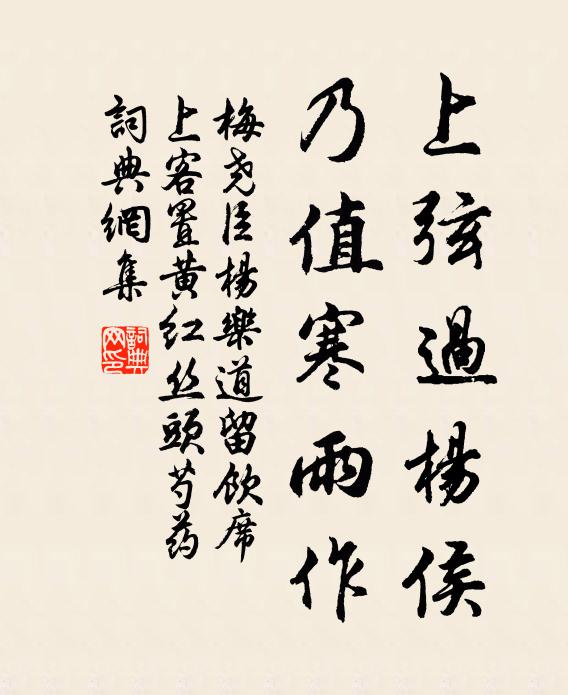 上弦過楊侯
乃值寒雨作
梅尧臣楊樂道留飲席
上客置黄红丝頭芍药
詞典網集
詞典
网印